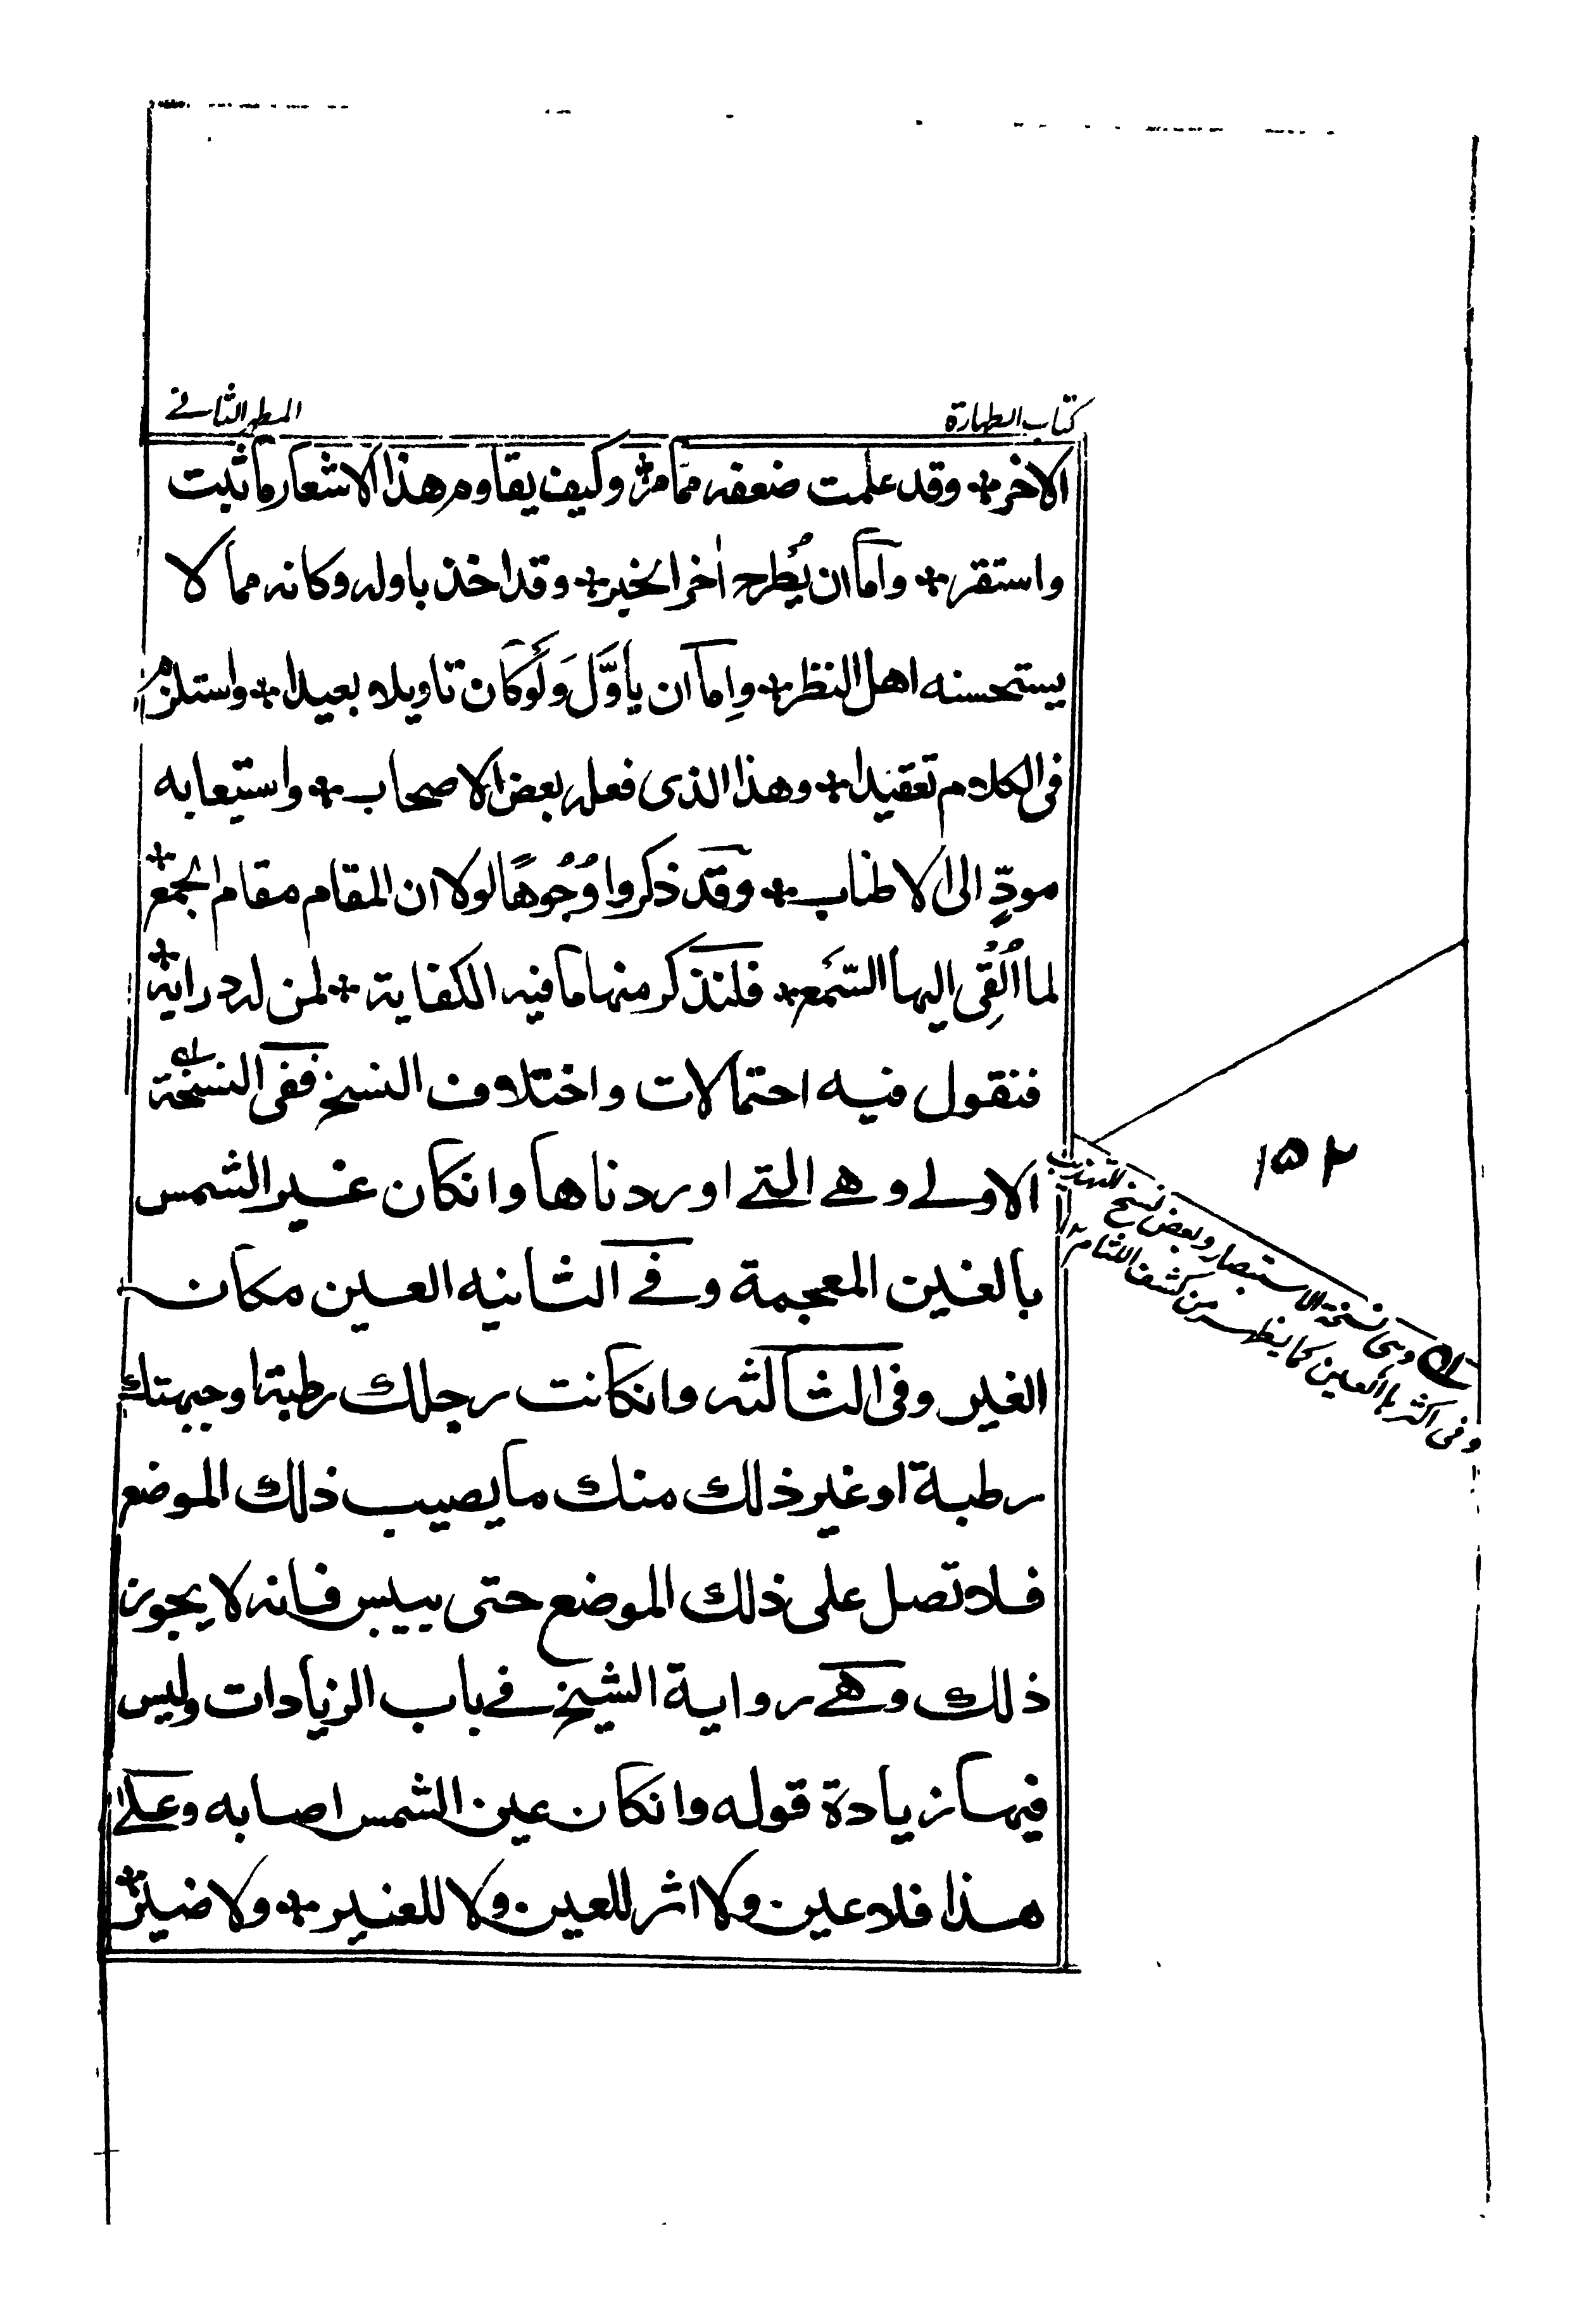 كتاب الطهارة
المطهر الثاني
الاخر ❊ وقد علمت ضعفه ممّا مرّ ❊ وكيف يقاوم هذا الاشعار ما ثبت
واستقر ❊ واما ان يُطرح اٰخر الخبر ❊ وقد اخذ باوله وكانه مما لا
يستحسنه اهل النظر ❊ واِما ان ياَوَّل وَلَو كان تاويلا بعيدا ❊ واستلزم
فى الكلام تعقيدا ❊ وهذا الذى فعله بعض الاصحاب ❊ واستيعابه
مودٍّ الى الاطناب ❊ وقد ذكروا وُجُوهًا لولا ان المقام مقام الجمع ❊
لما اُلْقِى اليها السَّمع ❊ فلنذكر منها ما فيه الكفاية ❊ لمن له دراية ❊
فنقول فيه احتمالات واختلاف النسخ ففى النسخة
الاولے وهے التے اوردناها وانكان غير الشمس
بالغين المعجمة وفے الثانيه العين مكان
الغير وفى الثالثه وانكانت رجلك رطبة او جبهتك
رطبة او غير ذلك منك ما يصيب ذلك الموضع
فلا تصل على ذلك الموضع حتى ييبس فانه لا يجوز
ذلك وهے رواية الشيخ فے باب الزيادات وليس
فيها زيادة قوله وانكان عين الشمس اصابه وعلے
هذا فلا عين ولا اثر للعين ولا للغير ❊ ولا ضير ❊
١٥٢
وهى نسخة الاستبصار وبعض نسخ التهذيب
وفى اكثرها العين كما يظهر من كشف اللثام